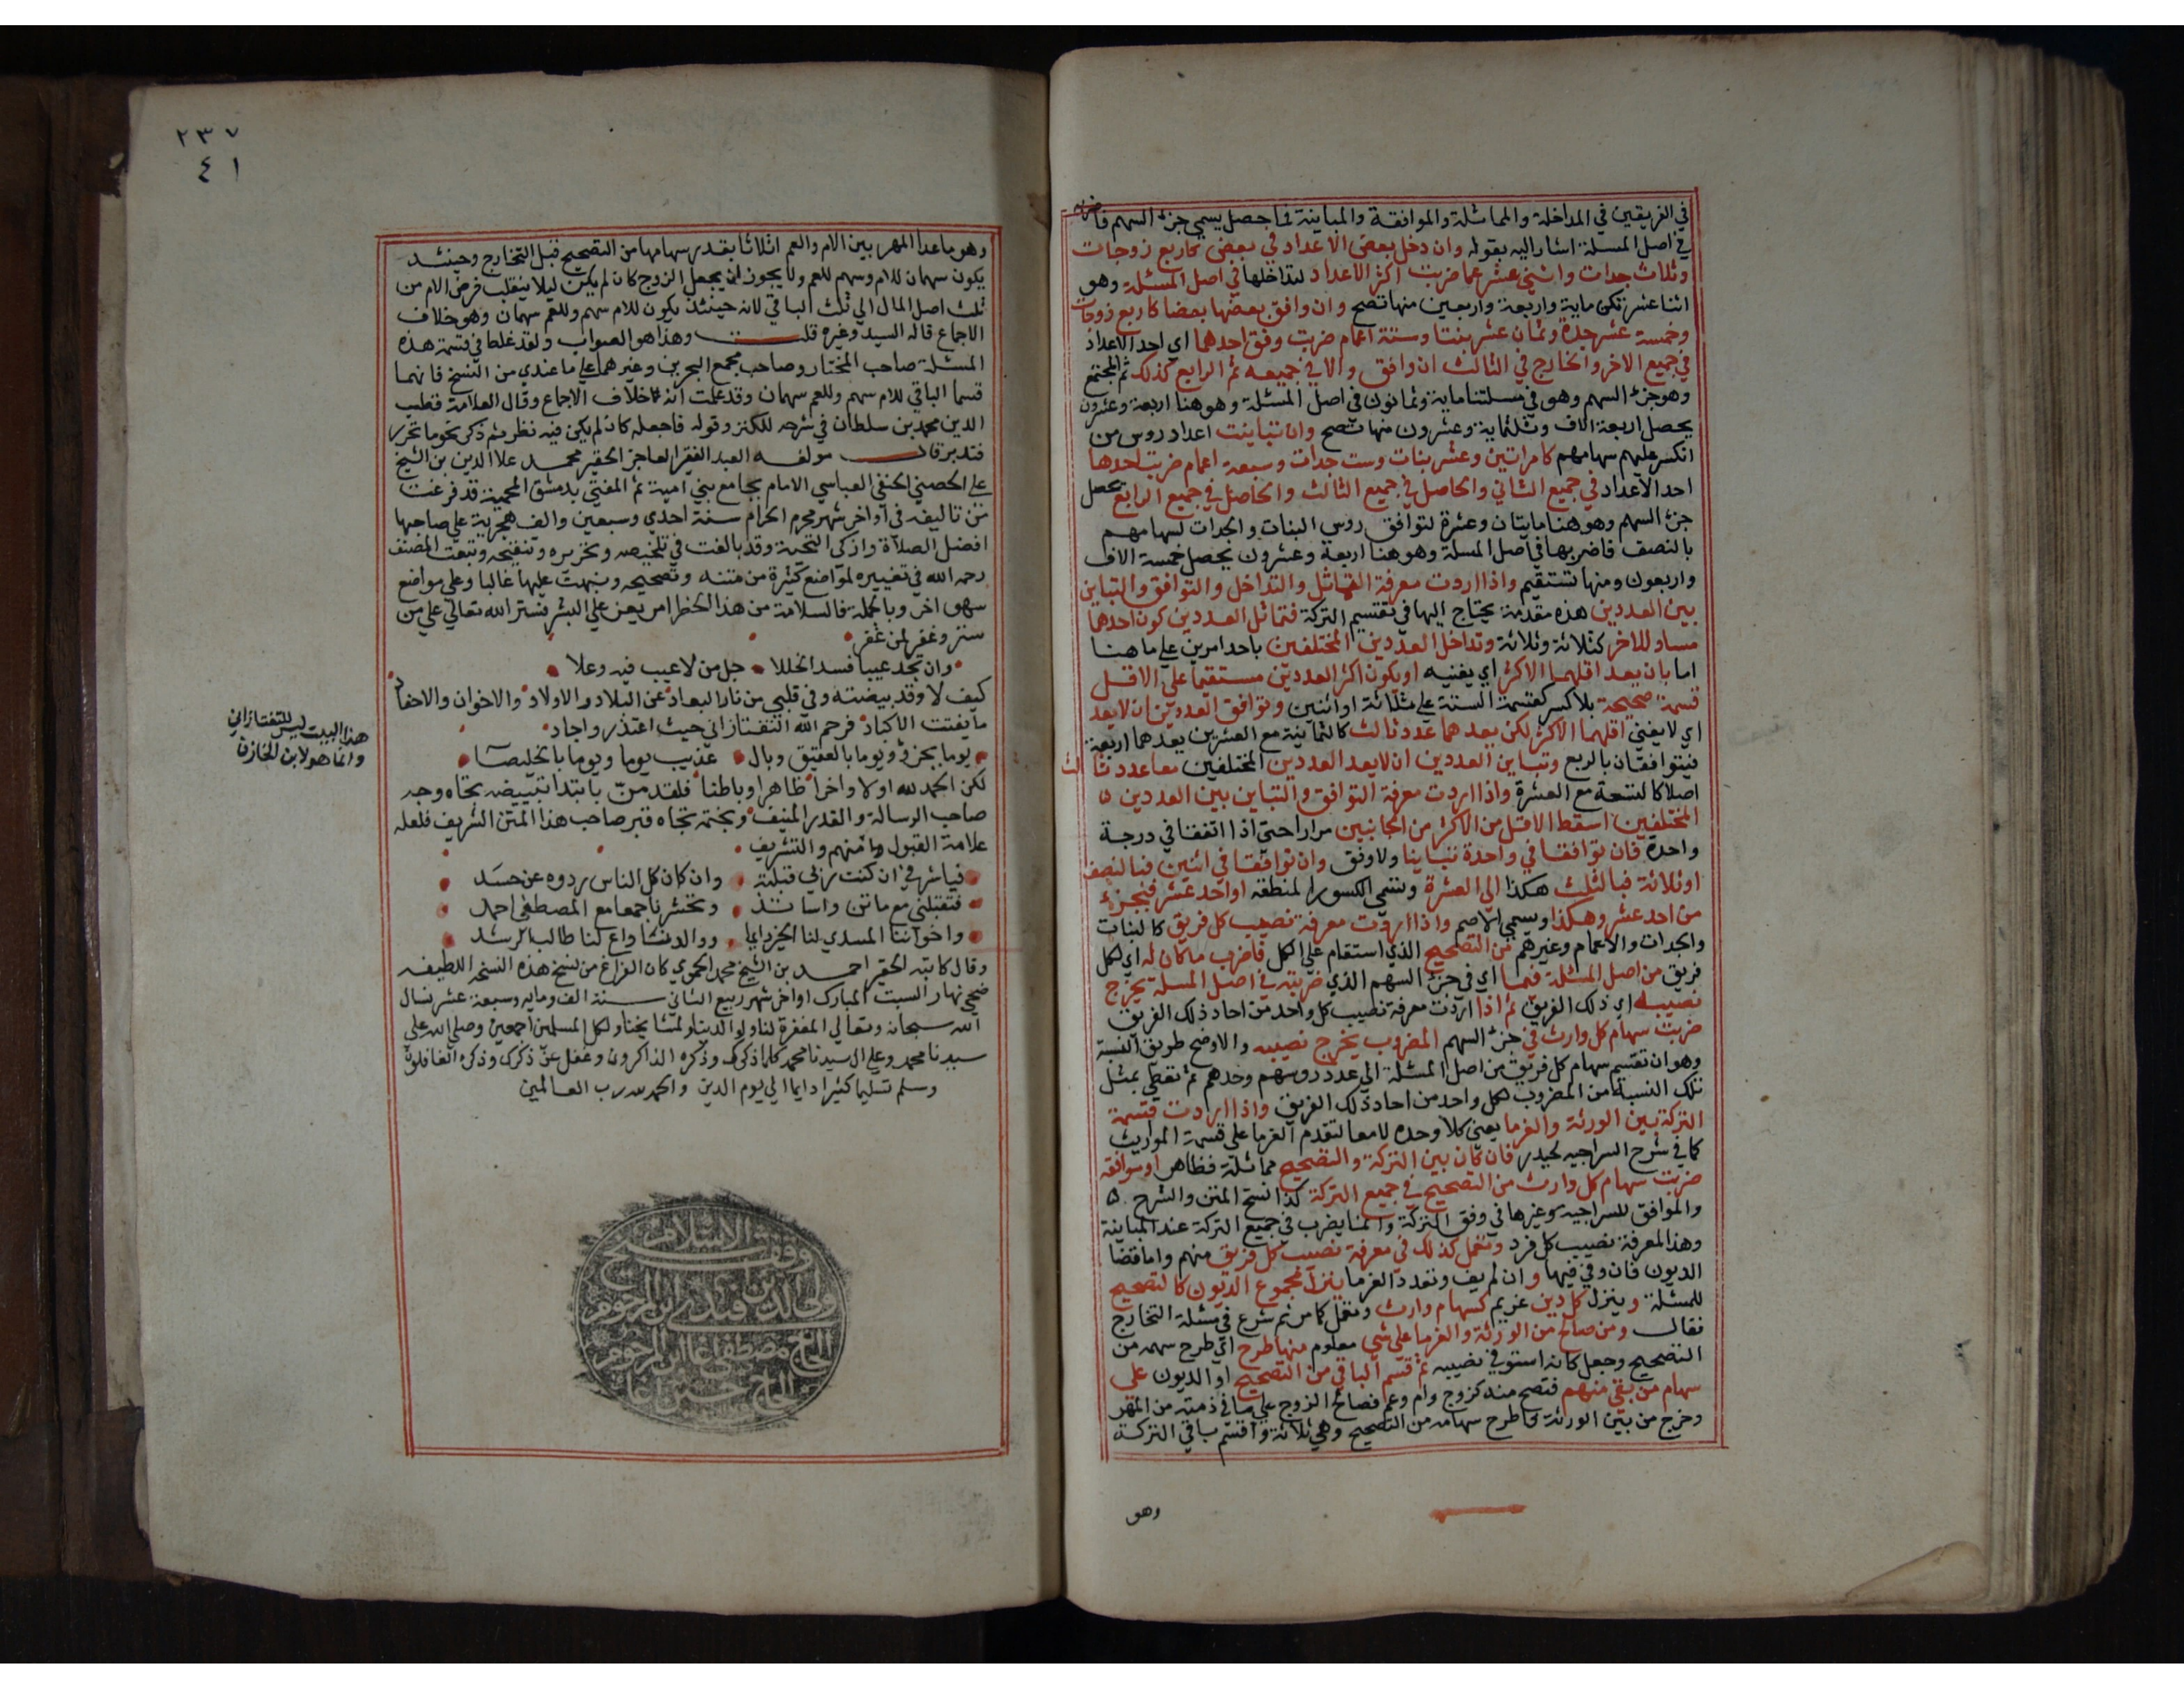 في الفريقين في المداخلة والمماثلة والموافقة والمباينة فما حصل يسمي جزء السهم فاضربه
في اصل المسلة اشار اليه بقوله وان دخل بعض الاعداد في بعض كاربع زوجات
وثلاث جدات واثني عشر عما ضربت اكثر الاعداد لتداخلها في اصل المسئلة وهو
اثنا عشر تكن ماية واربعة واربعين منها تصح وان وافق بعضها بعضا كاربع زوجات
وخمسة عشر جدة وثمان عشر بنتا وستة اعمام ضربت وفق احدهما اي احد الاعداد
في جميع الاخر والخارج في الثالث ان وافق والا في جميعه ثم الرابع كذلك ثم المجتمع
وهو جزء السهم وهو في مسلتنا ماية وثمانون في اصل المسئلة وهو هنا اربعة وعشرون
يحصل اربعة الاف وثلثماية وعشرون منها تصح وان تباينت اعداد روس من
انكسر عليهم سهامهم كامراتين وعشر بنات وست جدات وسبعة اعمام ضربت احدها
احد الاعداد في جميع الثاني والحاصل في جميع الثالث والحاصل في جميع الرابع يحصل
جزء السهم وهو هنا مايتان وعشرة لتوافق روس البنات والجدات لسهامهم
بالنصف فاضربها في اصل المسلة وهو هنا اربعة وعشرون يحصل خمسة الاف
واربعون ومنها تستقيم واذا اردت معرفة التماثل والتداخل والتوافق والتباين
بين العددين هذه مقدمة يحتاج اليها في تقسيم التركة فتماثل العددين كون احدهما
مساو للاخر كثلاثة وثلاثة وتداخل العددين المختلفين باحد امرين علي ما هنا
اما بان يعد اقلهما الاكثر اي يفنيه او يكون اكثر العددين مستقيما علي الاقل
قسمة صحيحة بلا كسر كقسمة الستة علي ثلاثة او اثنين وتوافق العددين ان لا يعد
اي لا يفني اقلهما الاكثر لكن يعدهما عدد ثالث كالثمانية مع العشرين يعدهما اربعة
فيتوافقان بالربع وتباين العددين ان لا يعد العددين المختلفين معا عدد ثالث
اصلا كالتسعة مع العشرة واذا اردت معرفة التوافق والتباين بين العددين
المختلفين اسقط الاقل من الاكثر من الجانبين مرارا حتي اذا اتفقا في درجة
واحدة فان توافقا في واحدة تباينا ولا وفق وان توافقا في اثنين فبالنصف
او ثلاثة فبالثلث هكذا الي العشرة وتسمي الكسور المنطقة او احد عشر فبجزء
من احد عشر وهكذا ويسمي الاصم واذا اردت معرفة نصيب كل فريق كالبنات
والجدات والاعمام وغيرهم من التصحيح الذي استقام علي الكل فاضرب ما كان له اي لكل
فريق من اصل المسئلة فيما اي في جزء السهم الذي ضربته في اصل المسلة يخرج
نصيبه اي ذلك الفريق ثم اذا اردت معرفة نصيب كل واحد من احاد ذلك الفريق
ضربت سهام كل وارث في جزء السهم المضروب يخرج نصيبه والاوضح طريق النسبة
وهو ان تقسم سهام كل فريق من اصل المسئلة الي عدد روسهم وحدهم ثم تعطي بمثل
تلك النسبة من المضروب لكل واحد من احاد ذلك الفريق واذا اردت قسمة
التركة بين الورثة والغرما يعني كلا وحده لا معا لتقدم الغرما علي قسمة المواريث
كما في شرح السراجيه لحيدر فان كان بين التركة والتصحيح مماثلة فظاهر او موافقه
ضربت سهام كل وارث من التصحيح في جميع التركة كذا نسخ المتن والشرح
والموافق للسراجيه وغيرها في وفق التركة وانما يضرب في جميع التركة عند المباينة
وهذا لمعرفة نصيب كل فرد وتعمل كذلك في معرفة نصيب كل فريق منهم واما قضا
الديون فان وفي فيها وان لم يف وتعدد الغرما ينزل مجموع الديون كالتصحيح
للمسئلة وينزل كل دين غريم كسهام وارث وتعمل كما مر ثم شرع في مسئلة التخارج
فقال ومن صالح من الورثة والغرما علي شي معلوم منها طرح اي طرح سهمه من
التصحيح وجعل كانه استوفي نصيبه ثم قسم الباقي من التصحيح او الديون علي
سهام من بقي منهم فتصح منه كزوج وام وعم فصالح الزوج علي ما في ذمته من المهر
وخرج من بين الورثة فاطرح سهامه من التصحيح وهي ثلاثة واقسم باقي التركة
وهو
٢٣٧
٤١
وهو ما عدا المهر بين الام والعم اثلاثا بقدر سهامها من التصحيح قبل التخارج وحينئد
يكون سهمان للام وسهم للعم ولا يجوز ان يجعل الزوج كان لم يكن ليلا ينقلب فرض الام من
ثلث اصل المال الي ثلث الباقي لانه حينئذ يكون للام سهم وللعم سهمان وهو خلاف
الاجماع قاله السيد وغيره قلت وهذا هو الصواب ولقد غلط في قسمة هذه
المسئلة صاحب المختار وصاحب مجمع البحرين وغيرهما علي ما عندي من النسخ فانهما
قسما الباقي للام سهم وللعم سهمان وقد علمت انه خلاف الاجماع وقال العلامة قطب
الدين محمد بن سلطان في شرحه للكنز وقوله فاجعله كان لم يكن فيه نظر ثم ذكر نحو ما تحرر
فتدبر قال مولفه العبد الفقير العاجز الحقير محمد علا الدين بن الشيخ
علي الحصني الحنفي العباسي الامام بجامع بني امية ثم المفتي بدمشق المحمية قد فرغت
من تاليفه في اواخر شهر محرم الحرام سنة احدي وسبعين والف هجرية علي صاحبها
افضل الصلاة وازكى التحية وقد بالغت في تلخيصه وتحريره وتنقيحه وتتبعت المصنف
رحمه الله في تغييره لمواضع كثيرة من متنه وتصحيحه ونبهت عليها غالبا وعلي مواضع
سهو اخر وبالجملة فالسلامة من هذا الخطر امر يعز علي البشر فستر الله تعالي علي من
ستر وغفر لمن غفر
وان تجد عيبا فسد الخللا جل من لا عيب فيه وعلا
كيف لا وقد بيضته وفي قلبي من نار البعاد عن البلاد والاولاد والاخوان والاحفاد
ما يفتت الاكباد فرحم الله التفتازاني حيث اعتذر واجاد
يوما بحزوي ويوما بالعقيق وبال عذيب يوما ويوما بالخليصا
لكن الحمد لله اولا واخرا ظاهرا وباطنا فلقد من بابتدا تبييضه تجاه وجه
صاحب الرسالة والقدر المنيف وبختمه تجاه قبر صاحب هذا المتن الشريف فلعله
علامة القبول منهم والتشريف
فيا شرفي ان كنت ربي قبلته وان كان كل الناس ردوه عن حسد
فتقبلني مع ماتن واساتذ وتحشرنا جمعا مع المصطفي احمد
واخواننا المسدي لنا الخير دايما ووالدنا داع لنا طالب الرشد
وقال كاتبه الحقير احمد بن الشيخ محمد الحموي كان الفراغ من نسخ هذه النسخه اللطيفه
ضحي نهار السبت المبارك اواخر شهر ربيع الثاني سنة الف ومايه وسبعة عشر نسال
الله سبحانه وتعالي المغفرة لنا ولوالدينا ولمشايخنا ولكل المسلمين اجمعين وصلي الله علي
سيدنا محمد وعلي ال سيدنا محمد كلما ذكرك وذكره الذاكرون وغفل عن ذكرك وذكره الغافلون
وسلم تسليما كثيرا دايما الي يوم الدين والحمد لله رب العالمين
هذا البيت ليس للتفتازاني
وانما هو لابن الخازن
وقف شيخ الاسلام
ولي الدين افندي ابن المرحوم
الحاج مصطفى اغا ابن المرحوم
الحاج حسين اغا